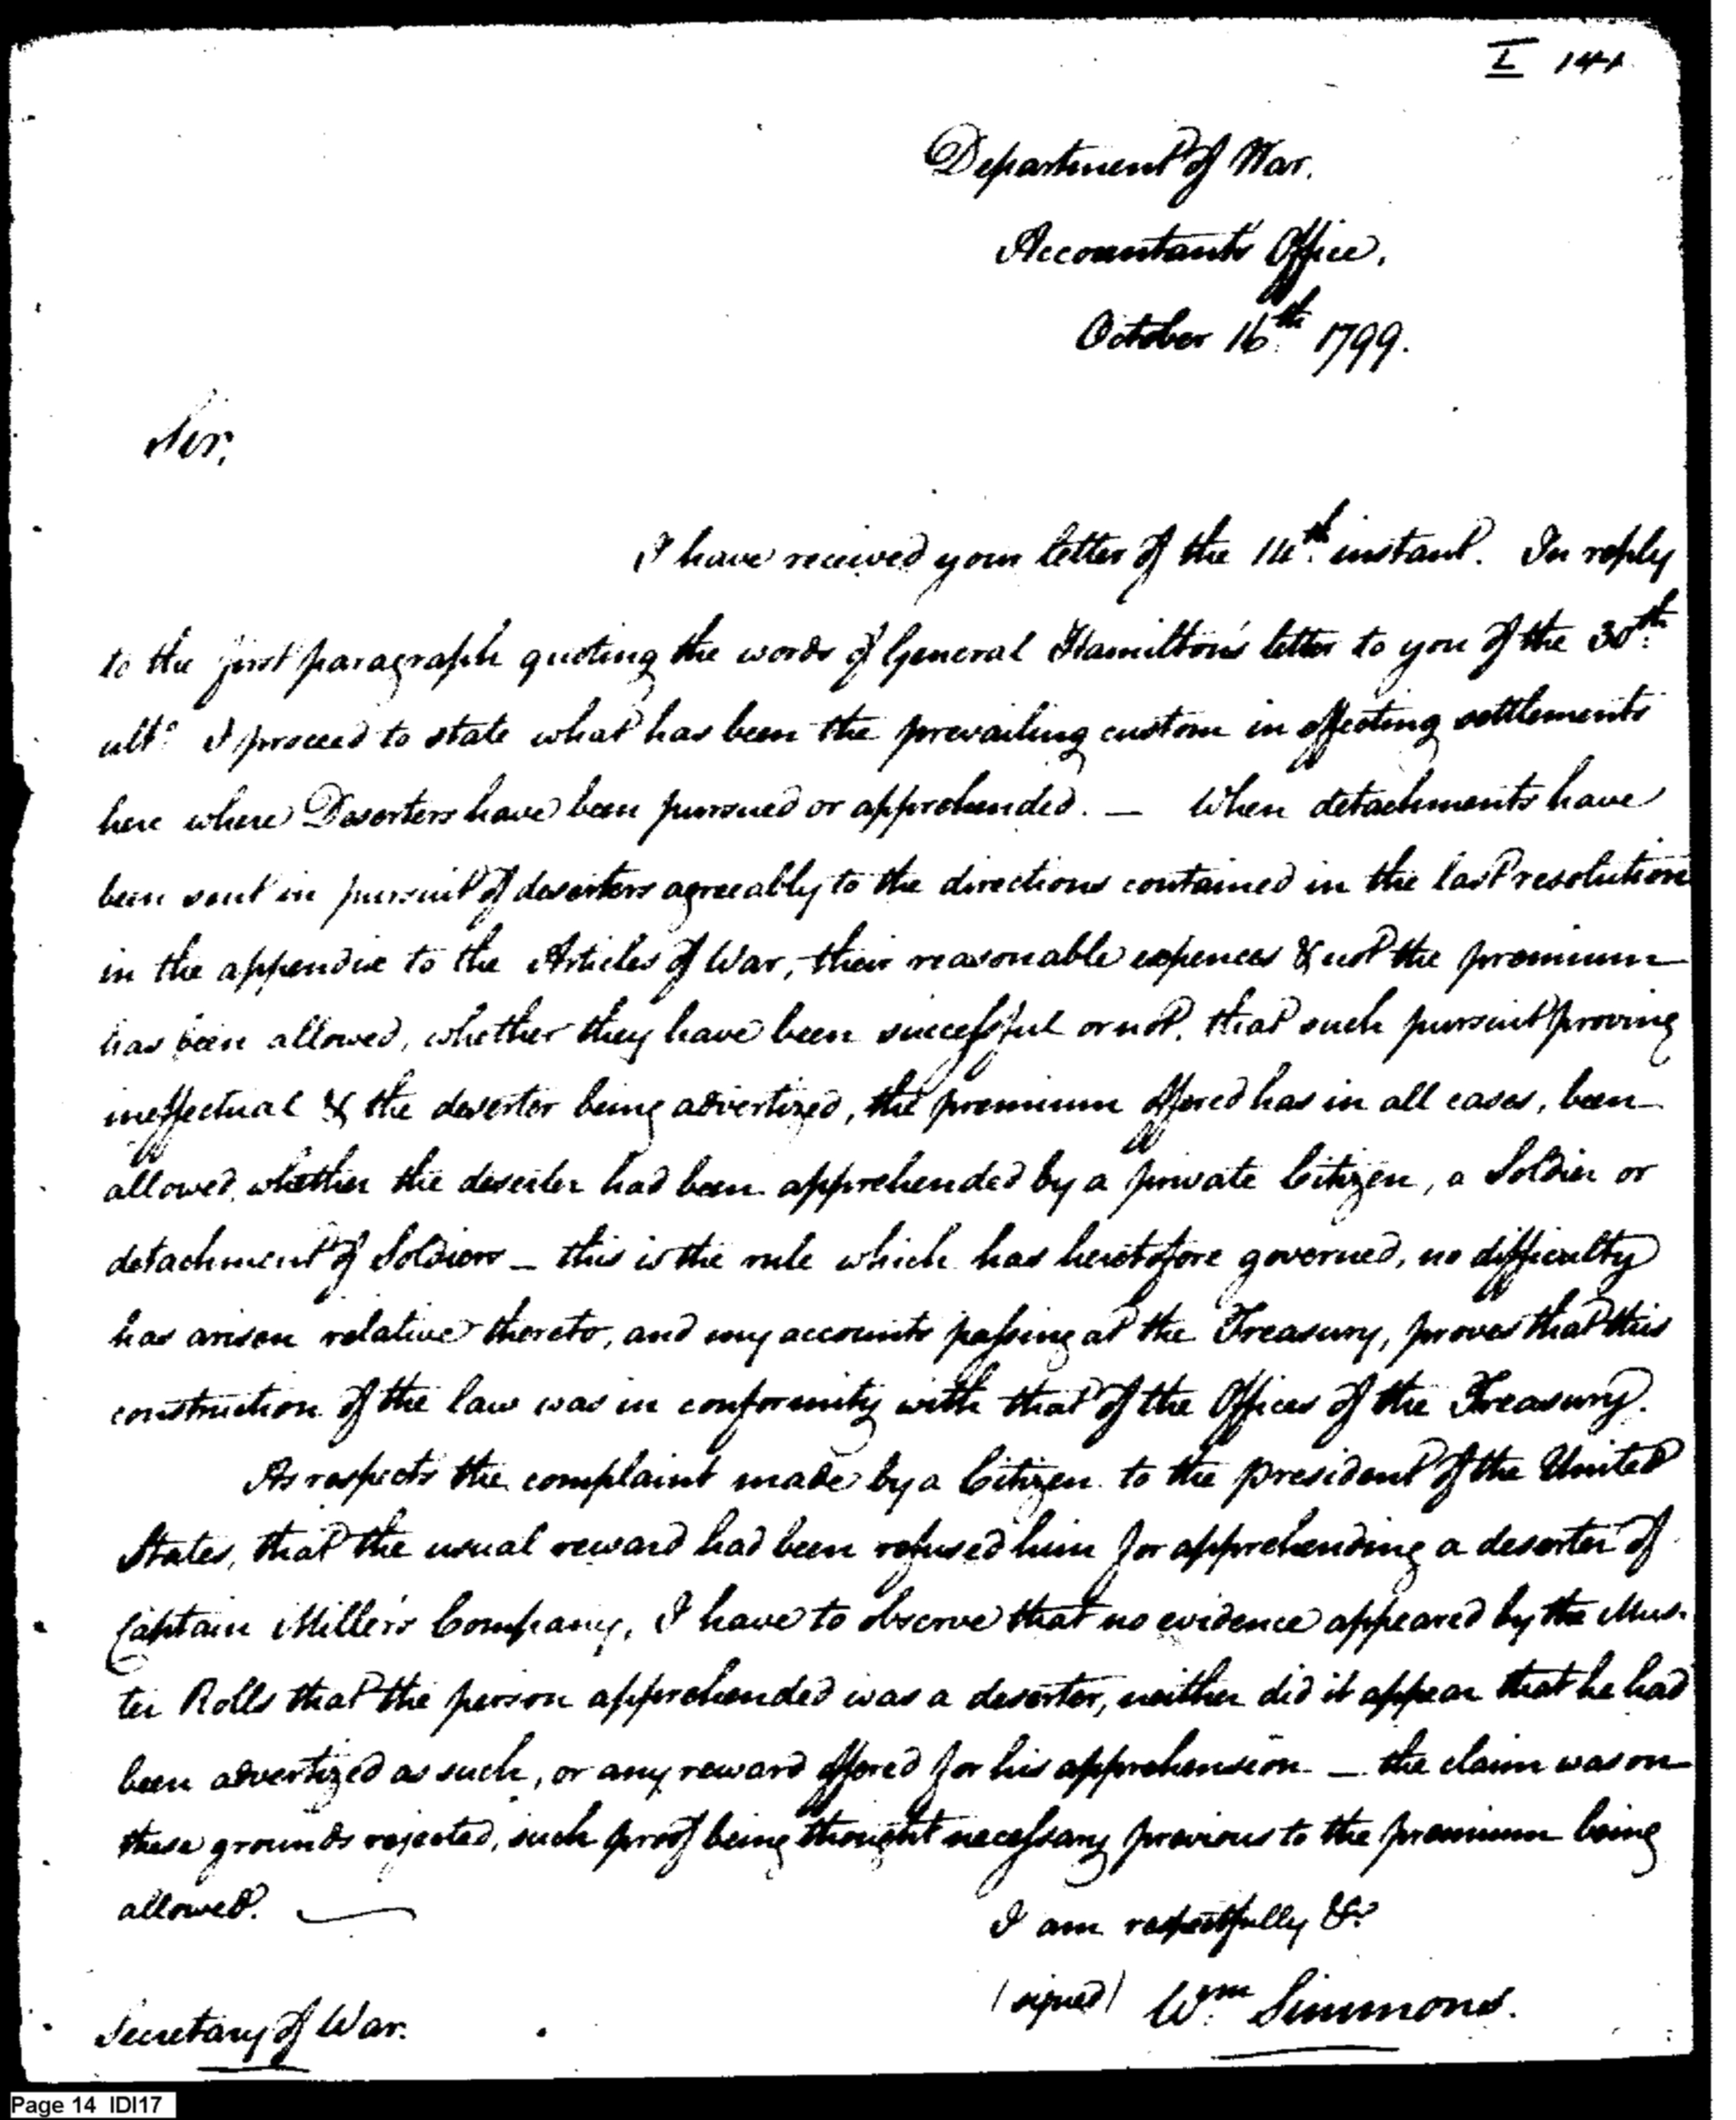 I 141
Department of War.
Accountant's Office,
October 16th. 1799.
Sir,
I have received your letter of the 14th. instant. In reply
to the first paragraph quoting the words of General Hamilton's letter to you of the 30th.
ulto. I proceed to state what has been the prevailing custom in effecting settlements
here where Deserters have been pursued or apprehended. — When detachments have
been sent in pursuit of deserters agreeably to the directions contained in the last resolution
in the appendix to the Articles of War, their reasonable expences & not the premium
has been allowed, whether they have been successful or not. that such pursuit proving
ineffectual & the deserter being advertized, the premium offered has in all cases, been
allowed, whether the deserter had been apprehended by a private Citizen, a Soldier or
detachment of Soldiers — this is the rule which has heretofore governed, no difficulty
has arisen relative thereto, and my accounts passing at the Treasury, proves that this
construction of the law was in conformity with that of the Offices of the Treasury.
As respects the complaint made by a Citizen to the president of the United
States, that the usual reward had been refused him for apprehending a deserter of
Captain Miller's Company, I have to observe that no evidence appeared by the Mus-
ter Rolls that the person apprehended was a deserter, neither did it appear that he had
been advertized as such, or any reward offered for his apprehension — the claim was on
these grounds rejected, such proof being thought necessary previous to the premium being
allowed. —
I am respectfully &c
(signed) Wm. Simmons.
Secretary of War.
Page 14 IDI17